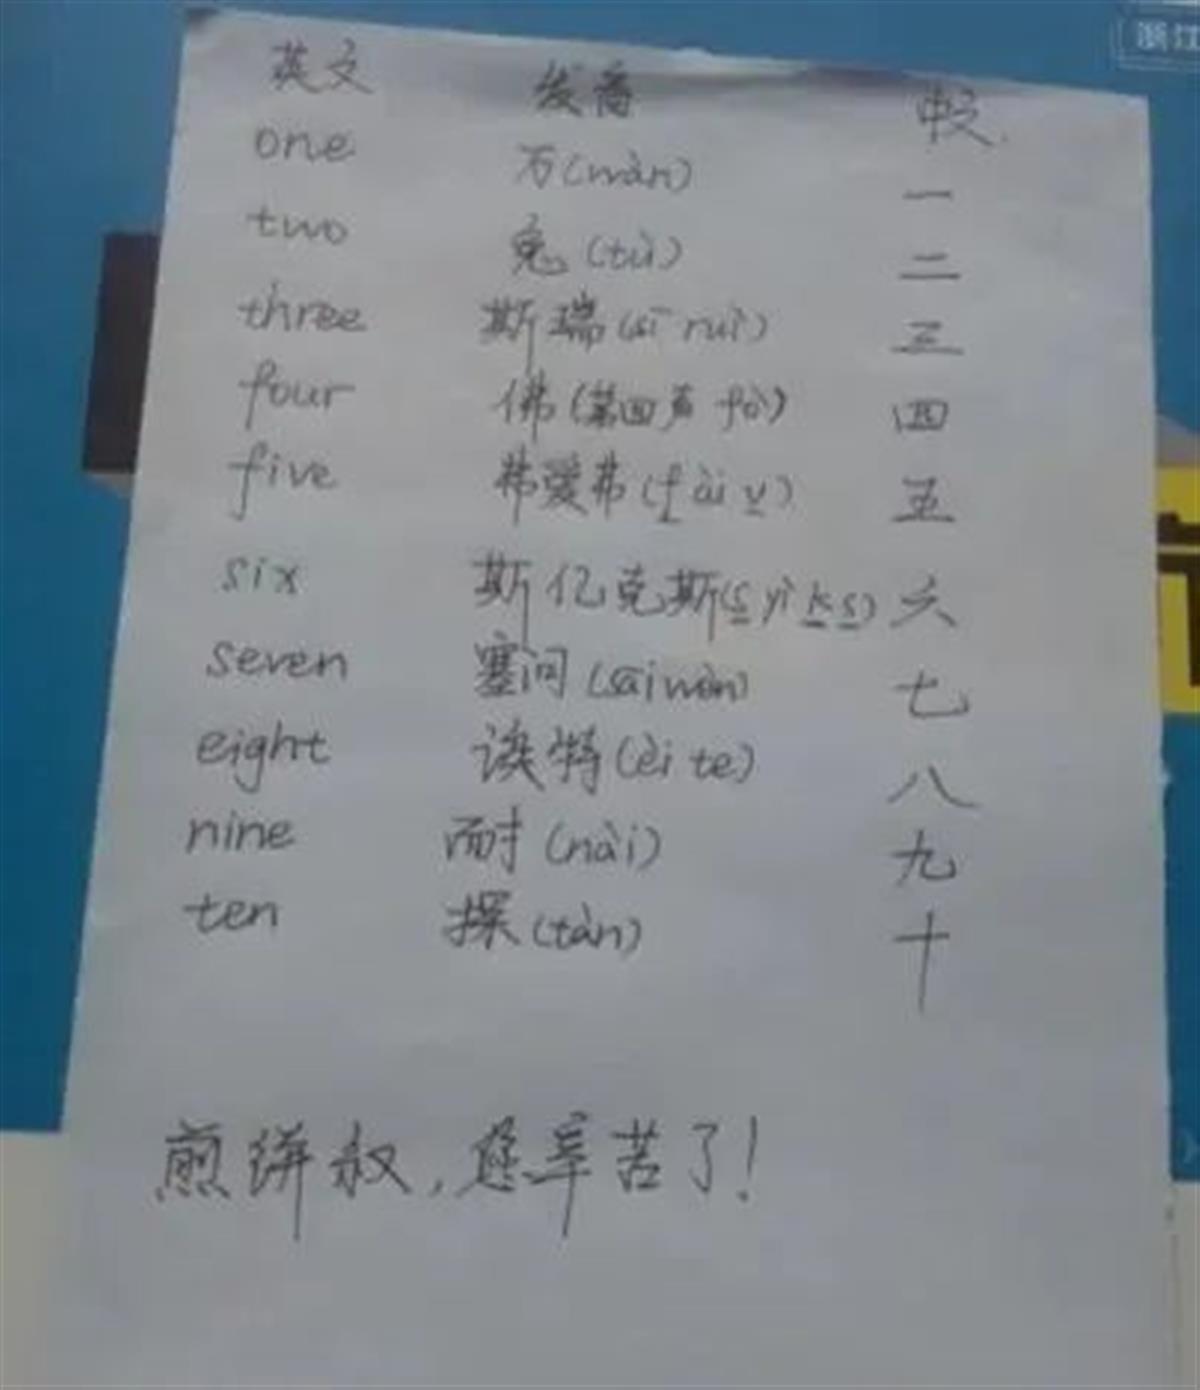 浙江
英文 发音 中文
one 万(wàn) 一
two 兔(tù) 二
three 斯瑞(sī ruì) 三
four 佛(第四声 fò) 四
five 弗爱弗(f ài v) 五
six 斯亿克斯(s yì k s) 六
seven 塞问(sāi wèn) 七
eight 诶特(èi te) 八
nine 耐(nài) 九
ten 探(tàn) 十
煎饼叔,您辛苦了!